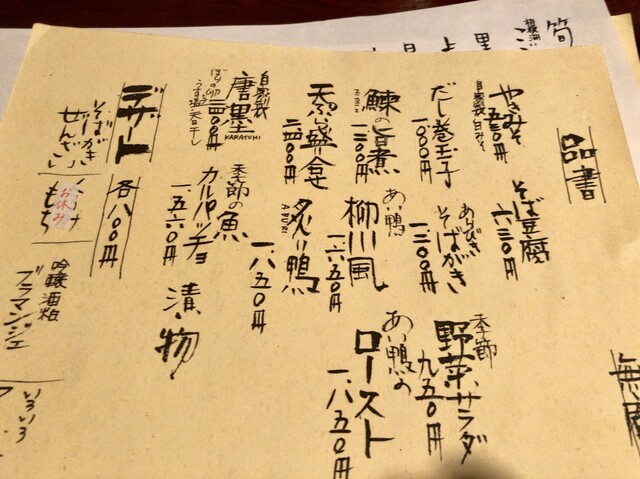 品書
やきみそ
自家製
五五〇円
そば豆腐
六三〇円
季節
野菜サラダ
九五〇円
だし巻玉子
一、〇〇〇円
あらびき
そばがき
一、二〇〇円
あい鴨の
ロースト
一、八五〇円
鰊の旨煮
一、二〇〇円
あい鴨
柳川風
一、六五〇円
天ぷら盛り合せ
二、四〇〇円
炙り鴨
ABURI
一、八五〇円
自家製
唐墨
KARASUMI
ぼらの卵
うす塩・天日干し
季節の魚
カルパッチョ
一、五六〇円
漬物
デザート
各八〇〇円
そばがき
ぜんざい
お休み
もち
吟醸酒粕
ブラマンジェ
いろいろ